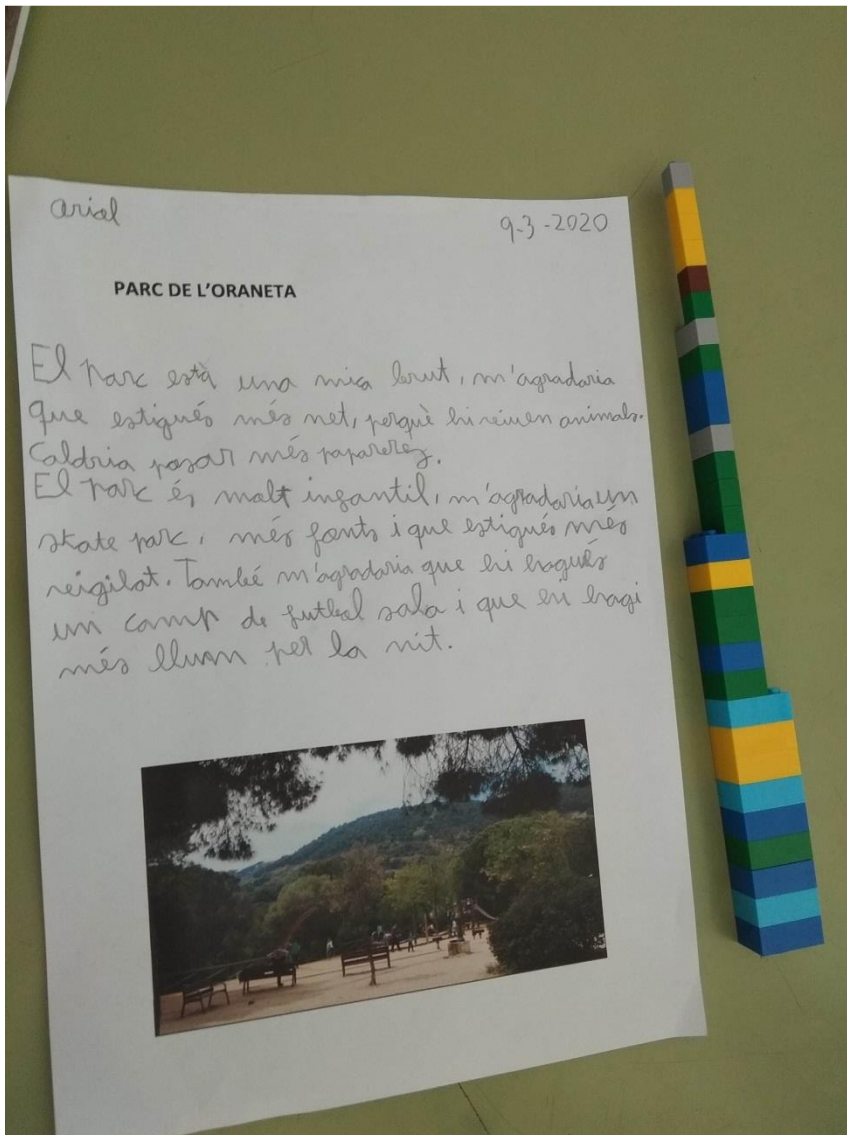 Ariel
9-3-2020
PARC DE L'ORANETA
El parc està una mica brut, m'agradaria
que estigués més net, perquè hi viuen animals.
Caldria posar més papareres.
El parc és molt infantil, m'agradaria un
skate parc, més fonts i que estigués més
vigilat. També m'agradaria que hi hagués
un camp de futbol sala i que hi hagi
més llum per la nit.